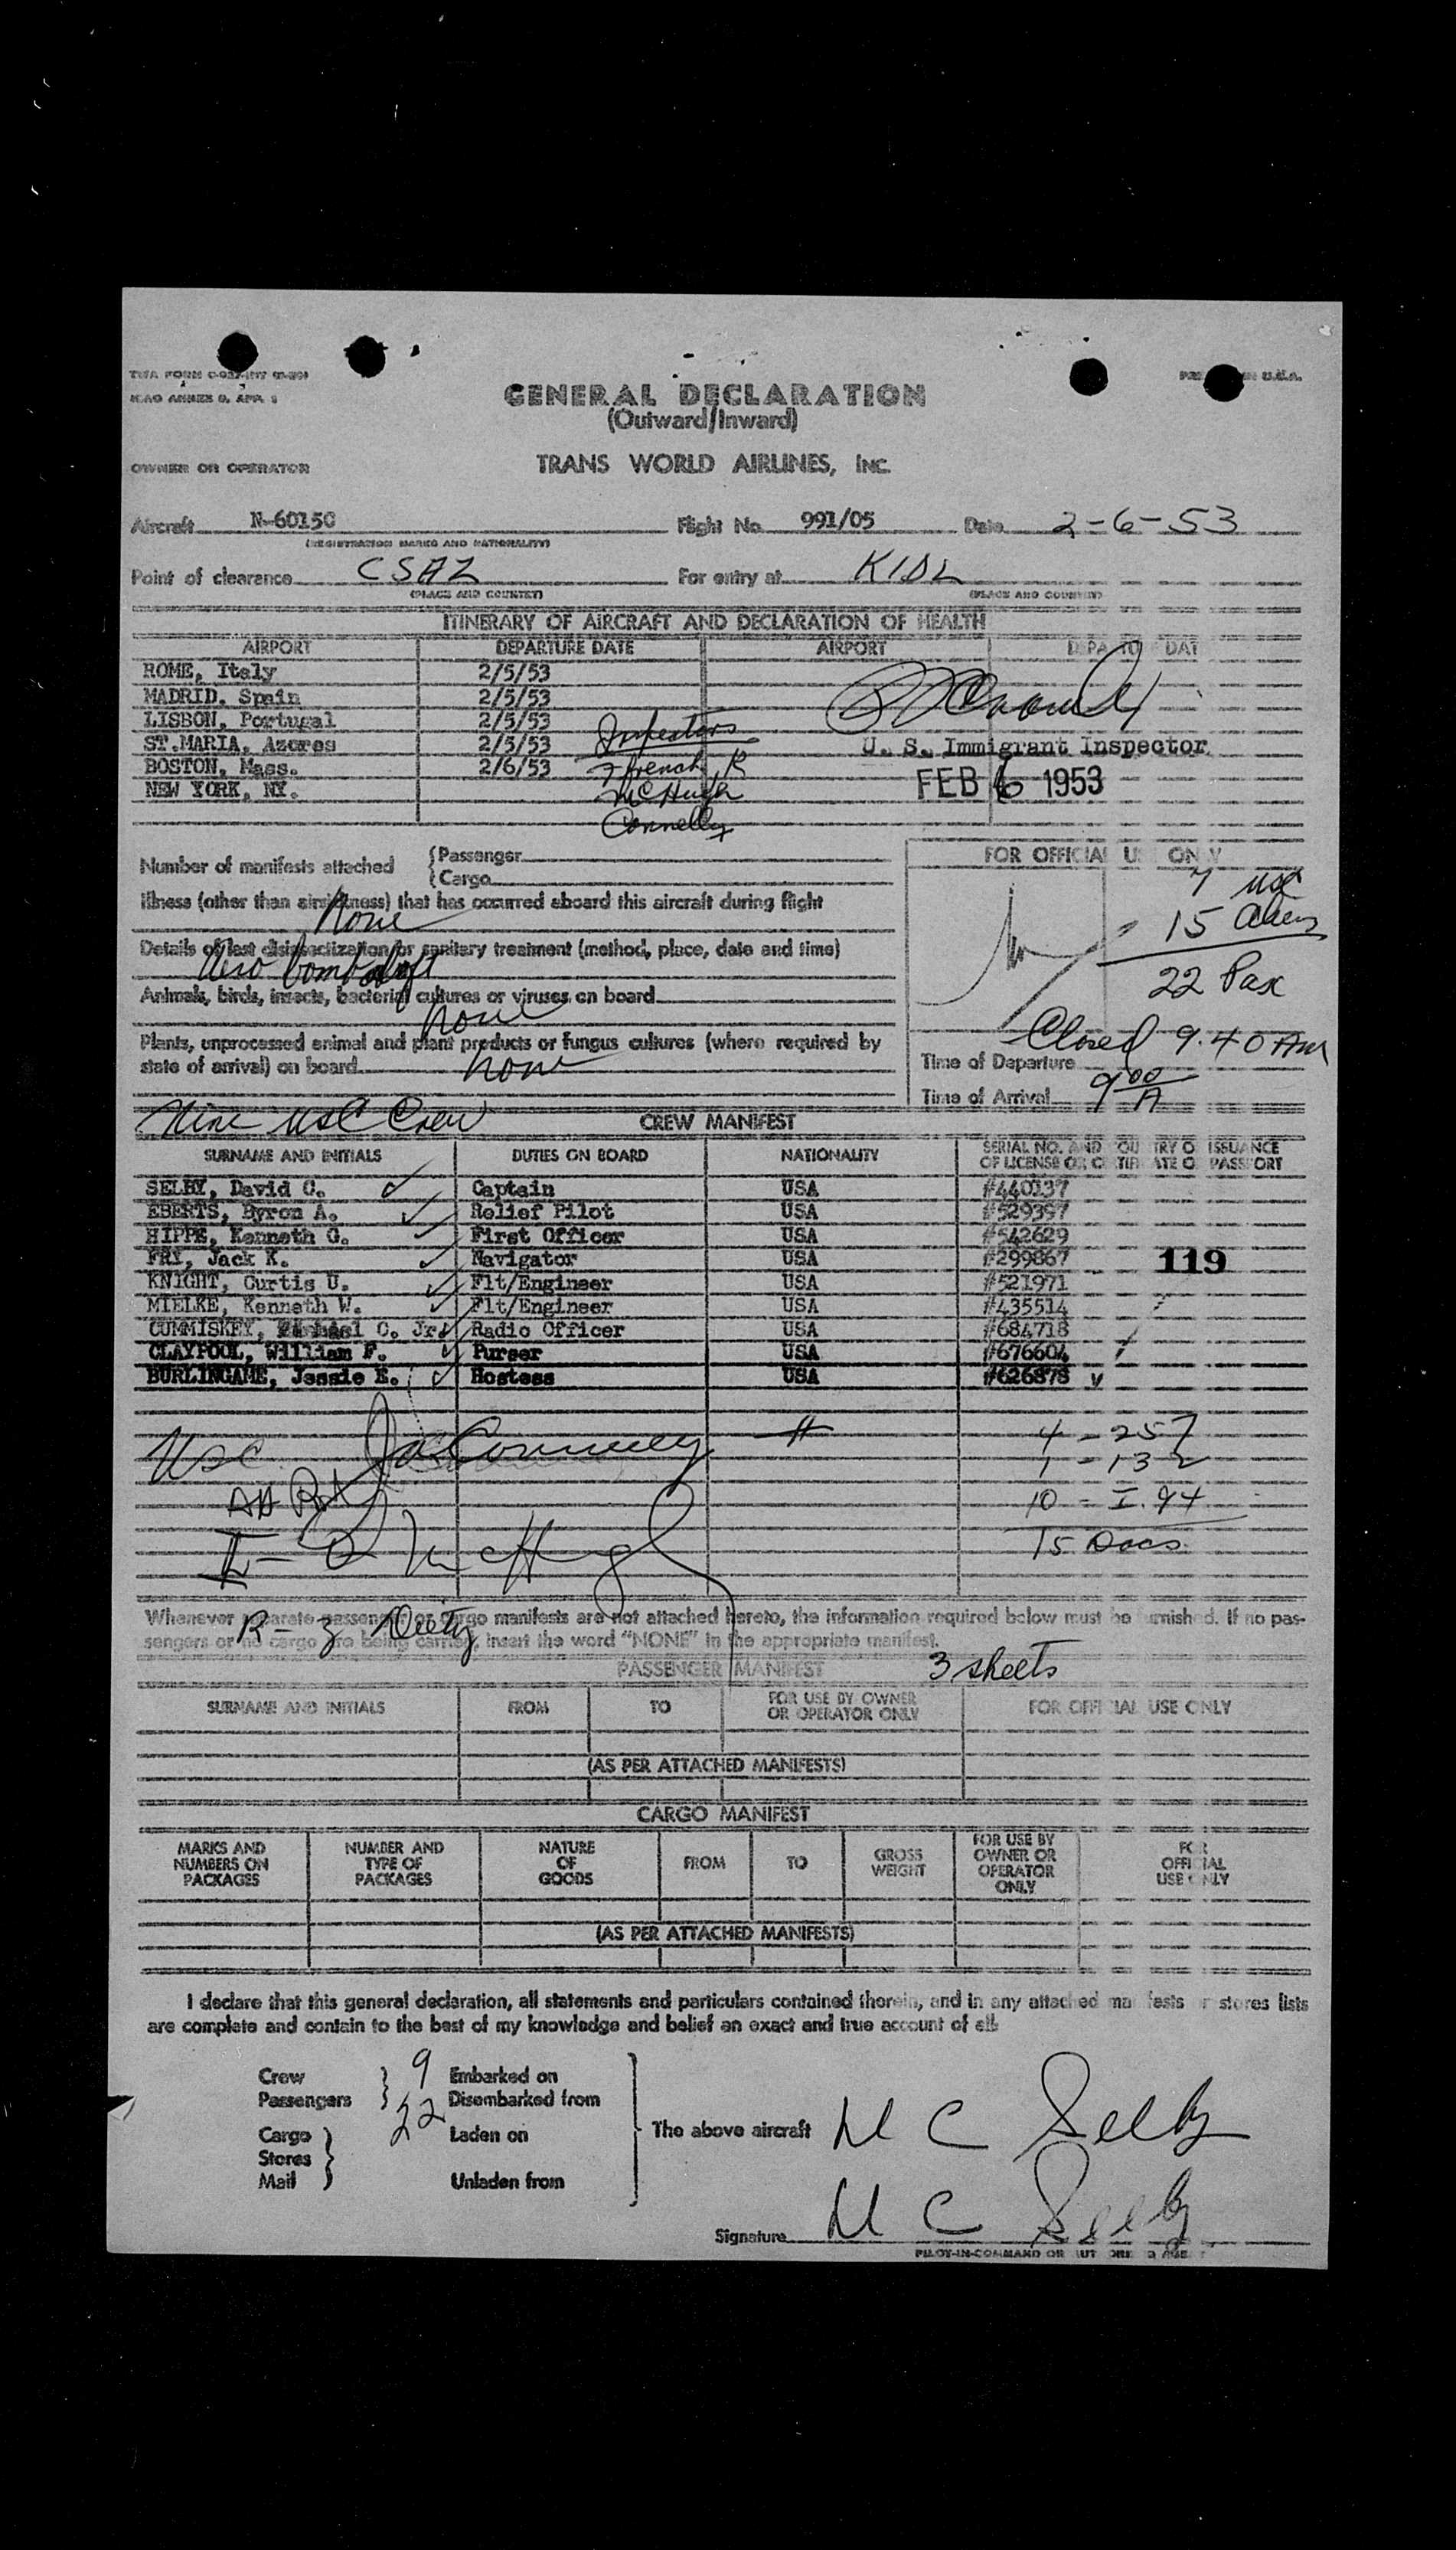 TWA FORM
ICAO ANNEX 9, APP. 1
GENERAL DECLARATION
(Outward/Inward)
OWNER OR OPERATOR TRANS WORLD AIRLINES, INC.
Aircraft N-6015C Flight No. 991/05 Date 2-6-53
(REGISTRATION MARKS AND NATIONALITY)
Point of clearance CSAZ For entry at KIDL
(PLACE AND COUNTRY) (PLACE AND COUNTRY)
ITINERARY OF AIRCRAFT AND DECLARATION OF HEALTH
AIRPORT DEPARTURE DATE AIRPORT DEPARTURE DAT
ROME, Italy 2/5/53
MADRID, Spain 2/5/53
LISBON, Portugal 2/5/53 Inspectors
ST.MARIA, Azores 2/5/53 U. S. Immigrant Inspector
BOSTON, Mass. 2/6/53 French R
NEW YORK, NY. McHugh FEB 6 1953
Connelly
Number of manifests attached {Passenger
{Cargo
FOR OFFICIAL USE ONLY
7 USC
15 Aliens
22 Pax
Illness (other than airsickness) that has occurred aboard this aircraft during flight
None
Details of last disinsectization or sanitary treatment (method, place, date and time)
Aero bomb aloft
Animals, birds, insects, bacterial cultures or viruses on board
None
Plants, unprocessed animal and plant products or fungus cultures (where required by
state of arrival) on board None
Closed 9.40 AM
Time of Departure
Time of Arrival 9 00 A
Nine USC Crew CREW MANIFEST
SURNAME AND INITIALS DUTIES ON BOARD NATIONALITY SERIAL NO. AND COUNTRY OF ISSUANCE
OF LICENSE OR CERTIFICATE OR PASSPORT
SELBY, David C. Captain USA #440137
EBERTS, Byron A. Relief Pilot USA #529397
HIPPE, Kenneth G. First Officer USA #542629
FRY, Jack K. Navigator USA #299867 119
KNIGHT, Curtis U. Flt/Engineer USA #521971
MIELKE, Kenneth W. Flt/Engineer USA #435514
CUMMISKEY, C. Jr. Radio Officer USA #684718
CLAYPOOL, William F. Purser USA #676604
BURLINGAME, Jessie E. Hostess USA #626878
USC 4 - 257
1 - 132
10 - I.94
I - McHugh 15 Docs
Whenever separate passenger or cargo manifests are not attached hereto, the information required below must be furnished. If no pas-
sengers or no cargo are being carried, insert the word "NONE" in the appropriate manifest.
R - 3
PASSENGER MANIFEST 3 sheets
SURNAME AND INITIALS FROM TO FOR USE BY OWNER OR OPERATOR ONLY FOR OFFICIAL USE ONLY
(AS PER ATTACHED MANIFESTS)
CARGO MANIFEST
MARKS AND NUMBERS ON PACKAGES NUMBER AND TYPE OF PACKAGES NATURE OF GOODS FROM TO GROSS WEIGHT FOR USE BY OWNER OR OPERATOR ONLY FOR OFFICIAL USE ONLY
(AS PER ATTACHED MANIFESTS)
I declare that this general declaration, all statements and particulars contained therein, and in any attached manifests or stores lists
are complete and contain to the best of my knowledge and belief an exact and true account of all
Crew 9 Embarked on
Passengers 22 Disembarked from
Cargo Laden on The above aircraft D C Selby
Stores
Mail Unladen from
Signature D C Selby
PILOT-IN-COMMAND OR AUTHORIZED AGENT